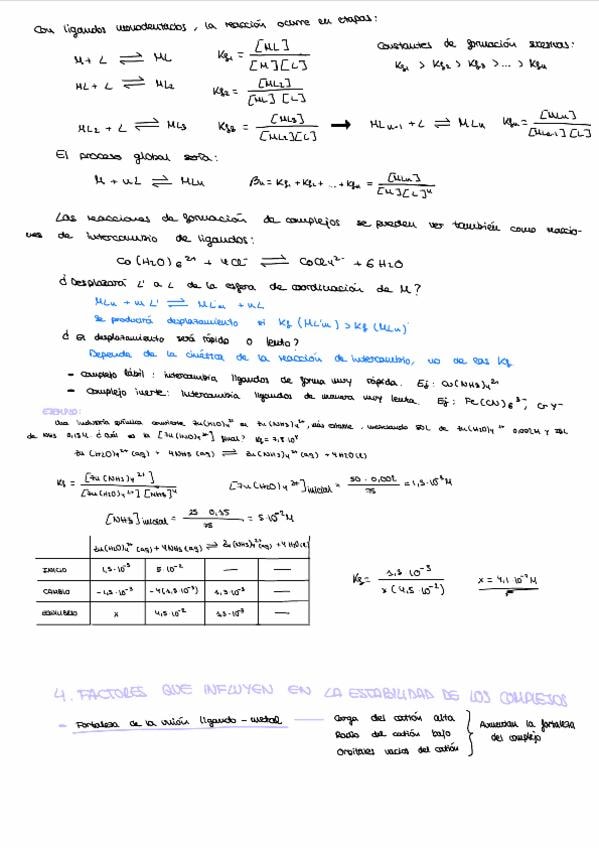 Con ligandos monodentados, la reacción ocurre en etapas:
M + L ⇌ ML Kf₁ = [ML] / [M][L] Constantes de formación sucesivas:
Kf₁ > Kf₂ > Kf₃ > ... > Kfn
ML + L ⇌ ML₂ Kf₂ = [ML₂] / [ML][L]
ML₂ + L ⇌ ML₃ Kf₃ = [ML₃] / [ML₂][L] → MLn-1 + L ⇌ MLn Kfn = [MLn] / [MLn-1][L]
El proceso global sería:
M + nL ⇌ MLn βn = Kf₁ + Kf₂ + ... + Kfn = [MLn] / [M][L]ⁿ
Las reacciones de formación de complejos se pueden ver también como reaccio-
nes de intercambio de ligandos:
Co(H₂O)₆²⁺ + 4Cl⁻ ⇌ CoCl₄²⁻ + 6H₂O
¿Desplazará L' a L de la esfera de coordinación de M?
MLn + mL' ⇌ ML'm + nL
Se producirá desplazamiento si Kf (ML'm) > Kf (MLn)
¿El desplazamiento será rápido o lento?
Dependa de la cinética de la reacción de intercambio, no de las Kf
- Complejo lábil: intercambia ligandos de forma muy rápida. Ej: Cu(NH₃)₄²⁺
- Complejo inerte: intercambia ligandos de manera muy lenta. Ej: Fe(CN)₆³⁻, CrY⁻
EJEMPLO:
Una industria química convierte Zn(H₂O)₄²⁺ en Zn(NH₃)₄²⁺, más estable, mezclando 50L de Zn(H₂O)₄²⁺ 0,002M y 25L
de NH₃ 0,15M. ¿Cuál es la [Zn(H₂O)₄²⁺] final? Kf = 7,8·10⁸
Zn(H₂O)₄²⁺ (aq) + 4NH₃ (aq) ⇌ Zn(NH₃)₄²⁺ (aq) + 4H₂O (l)
Kf = [Zn(NH₃)₄²⁺] / [Zn(H₂O)₄²⁺][NH₃]⁴ [Zn(H₂O)₄²⁺]inicial = 50 · 0,002 / 75 = 1,3·10⁻³M
[NH₃]inicial = 25 · 0,15 / 75 = 5·10⁻²M
Zn(H₂O)₄²⁺ (aq) + 4NH₃ (aq) ⇌ Zn(NH₃)₄²⁺ (aq) + 4H₂O (l)
INICIO 1,3·10⁻³ 5·10⁻² — —
CAMBIO -1,3·10⁻³ -4(1,3·10⁻³) 1,3·10⁻³ —
EQUILIBRIO x 4,5·10⁻² 1,3·10⁻³ —
Kf = 1,3·10⁻³ / x(4,5·10⁻²) x = 4,1·10⁻⁷M
4. FACTORES QUE INFLUYEN EN LA ESTABILIDAD DE LOS COMPLEJOS
- Fortaleza de la unión ligando-metal — Carga del catión alta
Radio del catión bajo
Orbitales vacíos del catión
Aumentan la fortaleza
del complejo